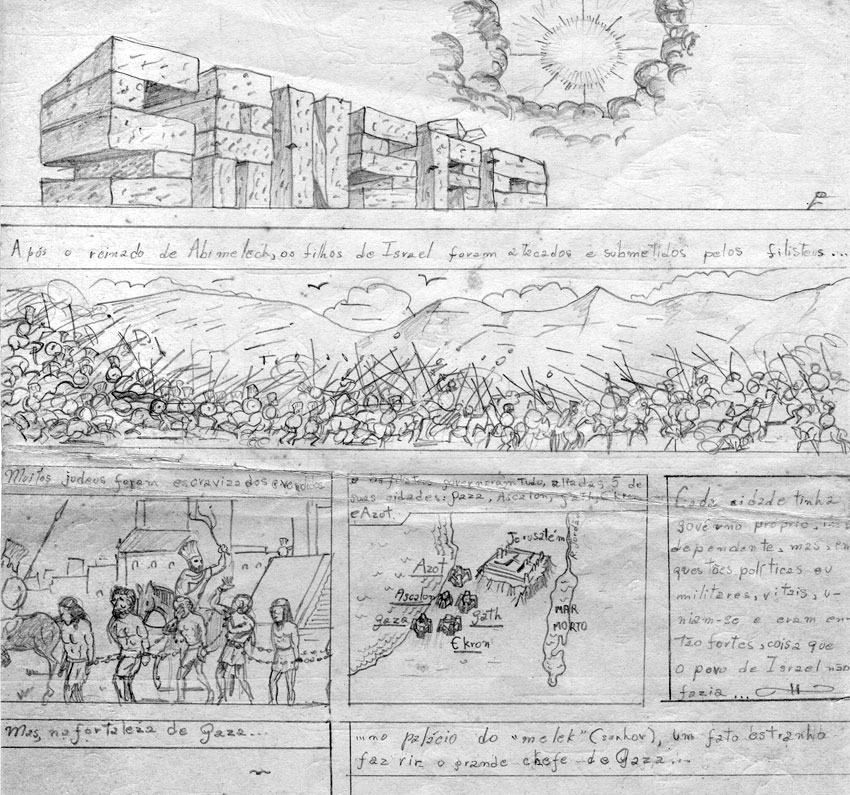 SANSÃO
Após o reinado de Abimelech, os filhos de Israel foram atacados e submetidos pelos filisteus...
Muitos judeus foram escravizados e vendidos
e os filisteus governaram tudo, aliadas 5 de
suas cidades: Gaza, Ascalon, gath, Ekron
e Azot.
Jerusalém
Azot
Ascalon
gaza
gath
Ekron
MAR
MORTO
Cada cidade tinha
govêrno proprio, in
dependente, mas, em
questões políticas ou
militares, vitais, u-
niam-se e eram en-
tão fortes, coisa que
o povo de Israel não
fazia...
Mas, na fortaleza de Gaza...
...no palácio do "melek" (senhor), um fato estranho
faz rir o grande chefe de Gaza...